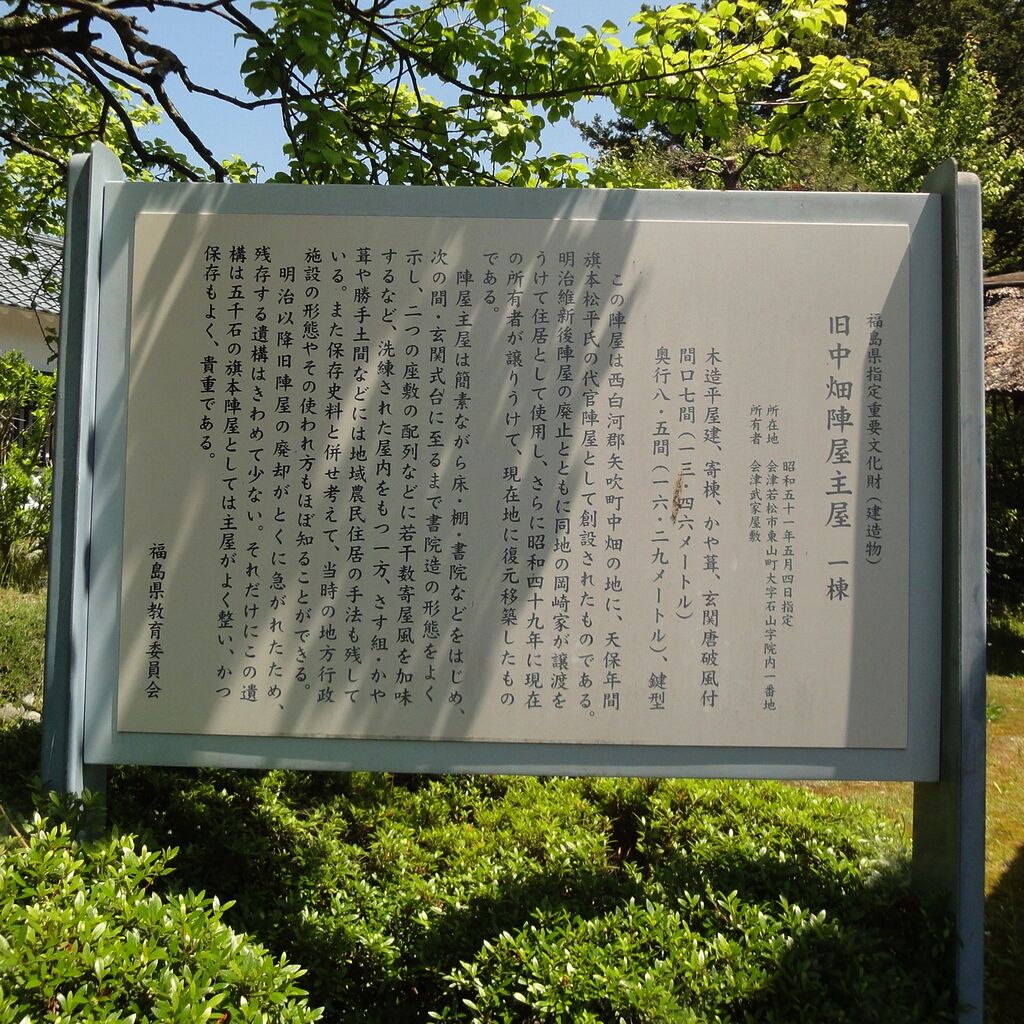 福島県指定重要文化財（建造物）
旧中畑陣屋主屋　一棟
昭和五十一年五月四日指定
所在地　会津若松市東山町大字石山字院内一番地
所有者　会津武家屋敷
木造平屋建、寄棟、かや葺、玄関唐破風付
間口七間（一三・四六メートル）
奥行八・五間（一六・二九メートル）、鍵型
この陣屋は西白河郡矢吹町中畑の地に、天保年間
旗本松平氏の代官陣屋として創設されたものである。
明治維新後陣屋の廃止とともに同地の岡崎家が譲渡を
うけて住居として使用し、さらに昭和四十九年に現在
の所有者が譲りうけて、現在地に復元移築したもの
である。
陣屋主屋は簡素ながら床・棚・書院などをはじめ、
次の間・玄関式台に至るまで書院造の形態をよく
示し、二つの座敷の配列などに若干数寄屋風を加味
するなど、洗練された屋内をもつ一方、さす組・かや
葺や勝手土間などには地域農民住居の手法も残して
いる。また保存史料と併せ考えて、当時の地方行政
施設の形態やその使われ方もほぼ知ることができる。
明治以降旧陣屋の廃却がとくに急がれたため、
残存する遺構はきわめて少ない。それだけにこの遺
構は五千石の旗本陣屋としては主屋がよく整い、かつ
保存もよく、貴重である。
福島県教育委員会